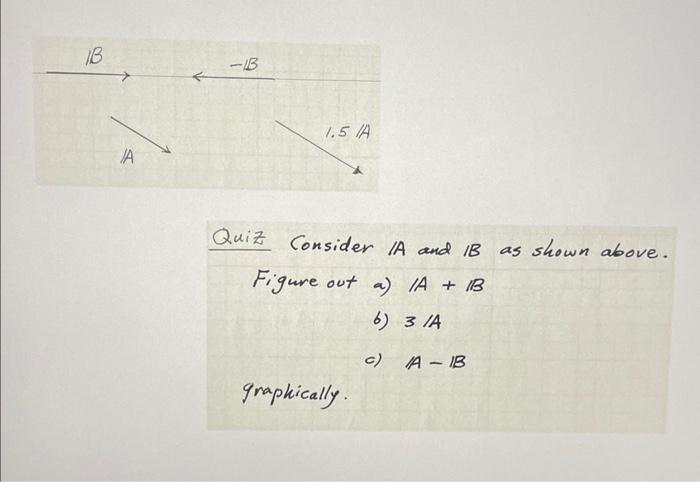 𝔹
-𝔹
1.5 𝔸
𝔸
Quiz Consider 𝔸 and 𝔹 as shown above.
Figure out a) 𝔸 + 𝔹
b) 3 𝔸
c) 𝔸 - 𝔹
graphically.